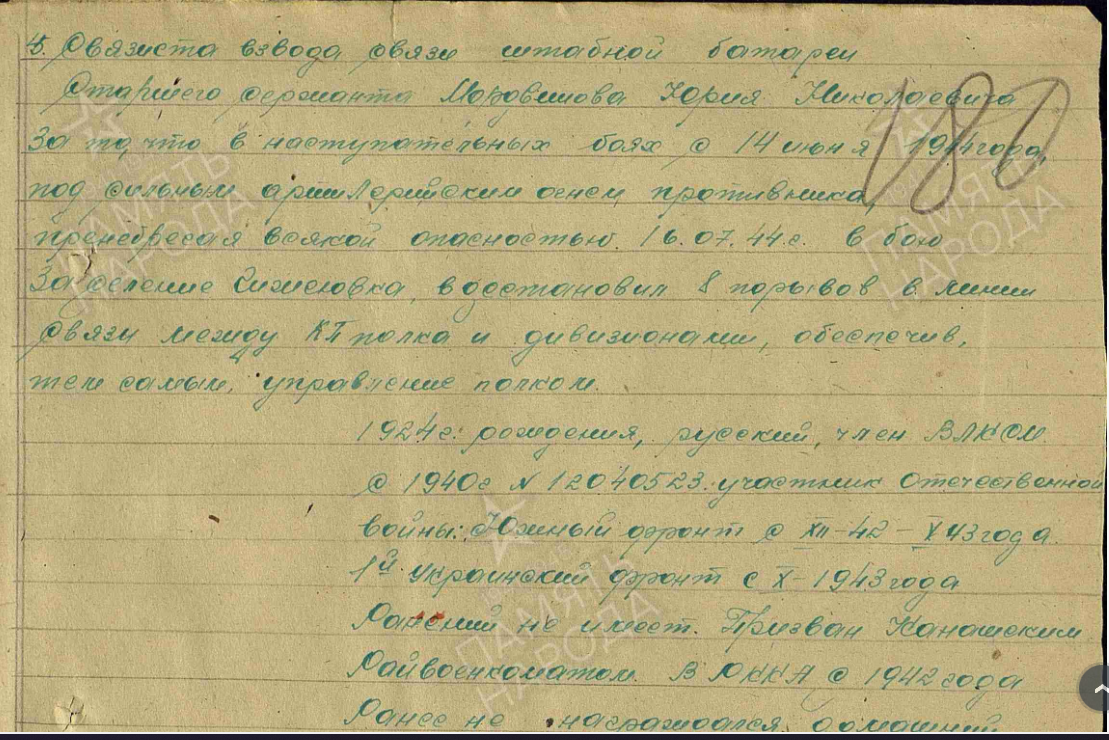 45. Связиста взвода связи штабной батареи
Старшего сержанта Юрия Николаевича
180
За то, что в наступательных боях с 14 июня 1944 года,
под сильным артиллерийским огнем противника,
пренебрегая всякой опасностью. 16.07.44 г. в бою
За селение восстановил 8 порывов в линии
связи между КП полка и дивизионами, обеспечив,
тем самым, управление полком.
1924 г. рождения, русский, член ВЛКСМ
с 1940 г N 12040523. участник Отечественной
войны: Южный фронт с XII-42 - X 43 года.
1й Украинский фронт с X-1943 года
Ранений не имеет. Призван Канашским
Райвоенкоматом. В РККА с 1942 года
Ранее не награждался. домашний
ПАМЯТЬ
НАРОДА
ПАМЯТЬ
НАРОДА
ПАМЯТЬ
НАРОДА